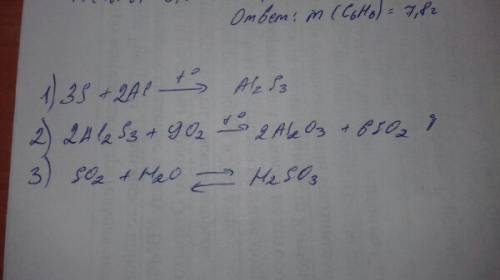 Ответ: m (C6H6) = 7,8г
1) 3S + 2Al t° → Al2S3
2) 2Al2S3 + 9O2 t° → 2Al2O3 + 6SO2
3) SO2 + H2O ⇄ H2SO3